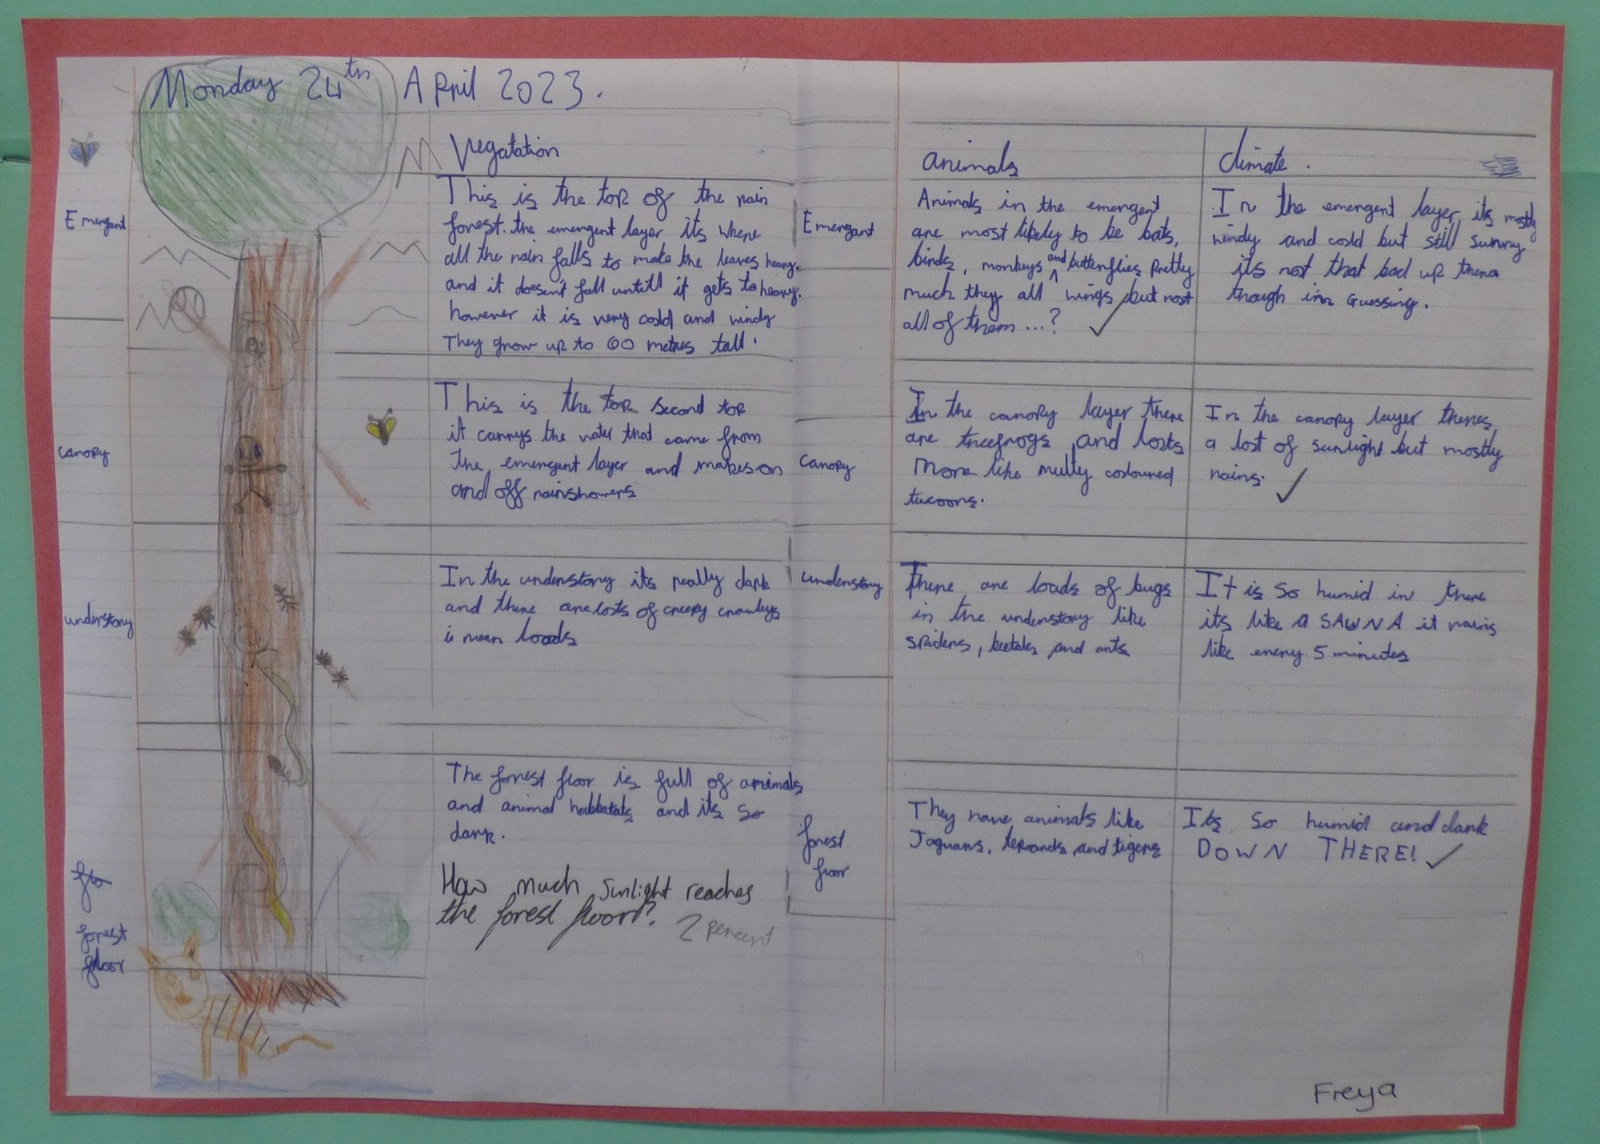 Monday 24th April 2023.
Vegatation
Emergant
This is the top of the rain
forest. the emergent layer its where
all the rain falls to make the leaves heavy.
and it doesn't fall untill it gets to heavy.
however it is very cold and windy
They grow up to 60 metres tall.
canopy
This is the top second top
it carrys the water that came from
the emergent layer and makes on
and off rainshowers
understory
In the understory its really dark
and there are lots of creepy crawleys
i mean loads
flo
forest
floor
The forest floor is full of animals
and animal habbatats and its so
dark.
How much sunlight reaches
the forest floor?
2 percent
animals
climate.
Emergant
Animals in the emergent
are most likely to be bats,
birds, monkeys and butterflies pretty
much they all wings, but not
all of them ...?
In the emergent layer, its mostly
windy and cold but still sunny
its not that bad up there
though im Guessing.
Canopy
In the canopy layer there
are treefrogs and lots
more like multy coloured
tucoons.
In the canopy layer theres,
a lot of sunlight but mostly
rains.
understory
There are loads of bugs
in the understory like
spiders, beetals and ants.
It is so humid in there
its like a SAWNA it rains
like every 5 minutes
forest
floor
They have animals like
Jaguars, lepards and tigers
Its so humid and dark
DOWN THERE!
Freya